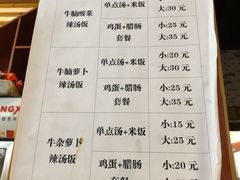 牛腩酸菜
辣汤饭
单点汤+米饭
大:30 元
鸡蛋+腊肠
套餐
小:25 元
大:35 元
牛腩萝卜
辣汤饭
单点汤+米饭
小:20 元
大:30 元
鸡蛋+腊肠
套餐
小:25 元
大:35 元
牛杂萝卜
辣汤饭
单点汤+米饭
小:15 元
大:25 元
鸡蛋+腊肠
小:20 元